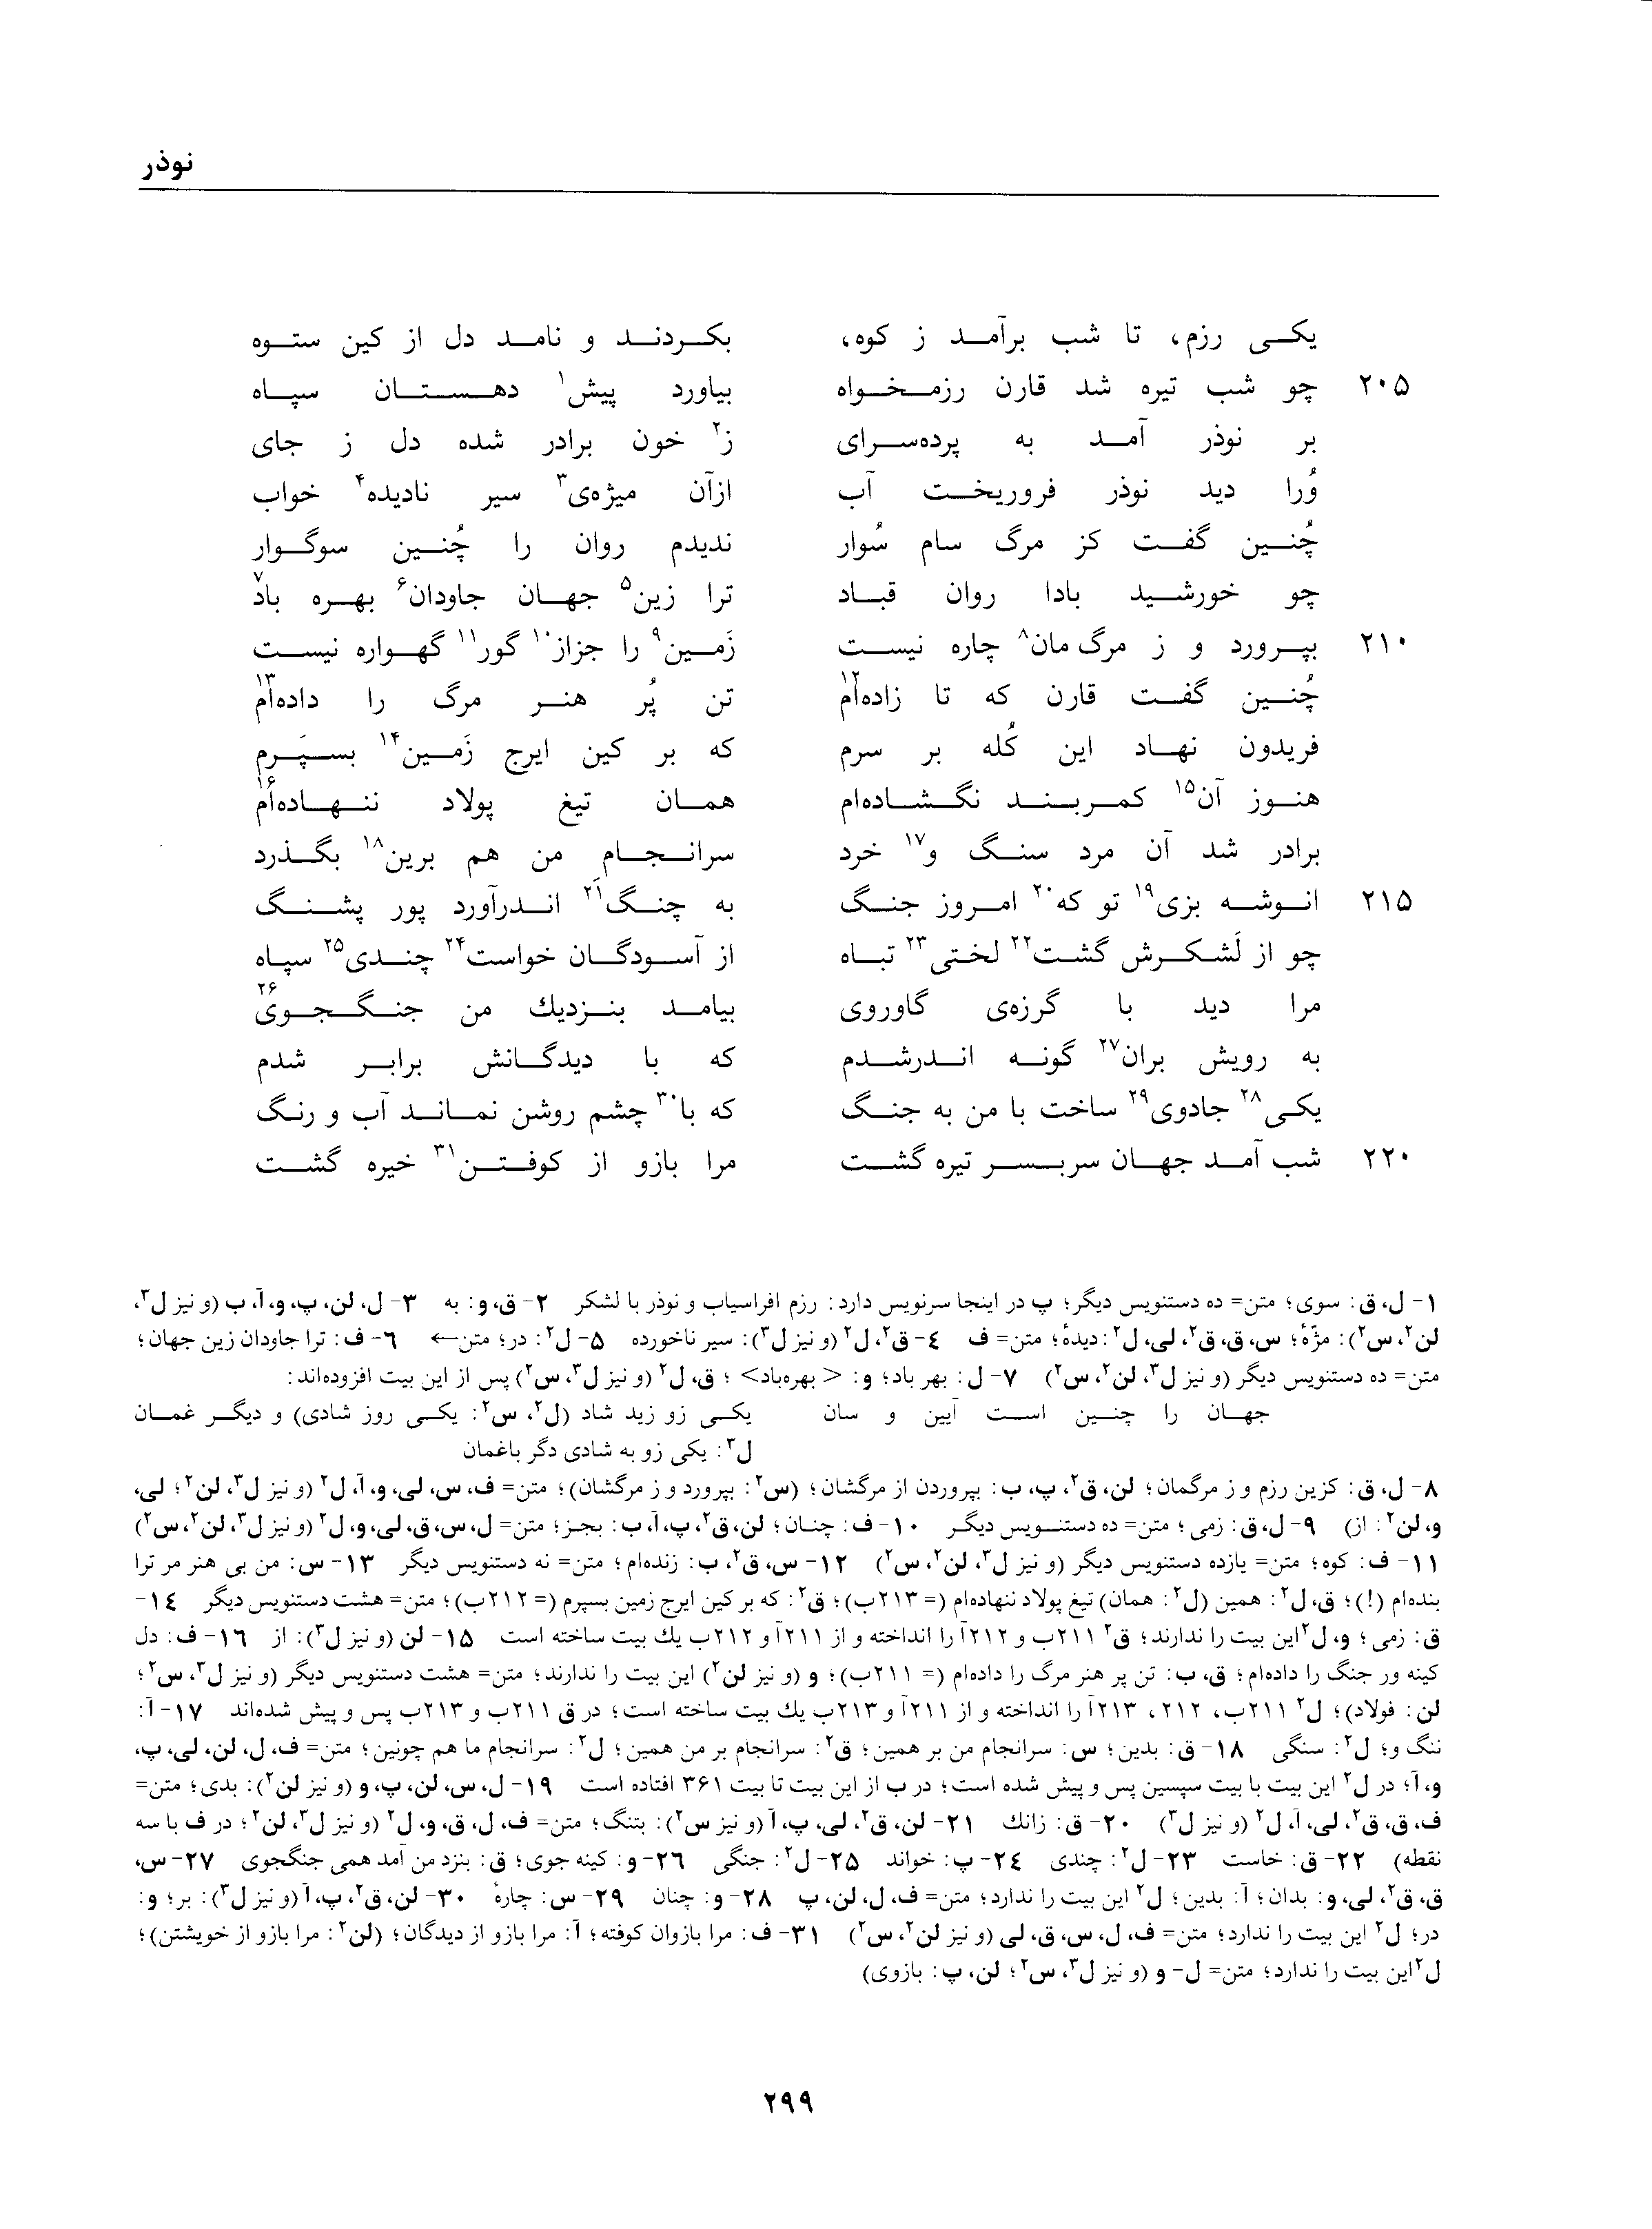 نوذر
یکی رزم، تا شب برآمد ز کوه، بکردند و نامد دل از کین ستوه
۲۰۵ چو شب تیره شد قارن رزمخواه بیاورد پیش۱ دهستان سپاه
بر نوذر آمد به پرده‌سرای ز۲ خون برادر شده دل ز جای
وُرا دید نوذر فروریخت آب ازآن میژه‌ی۳ سیر نادیده۴ خواب
چُنین گفت کز مرگ سام سُوار ندیدم روان را چُنین سوگوار
چو خورشید بادا روان قباد ترا زین۵ جهان جاودان۶ بهره باد۷
۲۱۰ بپرورد و ز مرگ‌مان۸ چاره نیست زَمین۹ را جزاز۱۰ گور۱۱ گهواره نیست
چُنین گفت قارن که تا زاده‌ام۱۲ تن پُر هنر مرگ را داده‌ام۱۳
فریدون نهاد این کُله بر سرم که بر کین ایرج زَمین۱۴ بسپَرم
هنوز آن۱۵ کمربند نگشاده‌ام همان تیغ پولاد ننهاده‌ام۱۶
برادر شد آن مرد سنگ و۱۷ خرد سرانجامِ من هم برین۱۸ بگذرد
۲۱۵ انوشه بزی۱۹ تو که۲۰ امروز جنگ به چنگ۲۱ اندرآورد پور پشنگ
چو از لَشکرش گشت۲۲ لختی۲۳ تباه از آسودگان خواست۲۴ چندی۲۵ سپاه
مرا دید با گرزه‌ی گاوروی بیامد بنزدیك من جنگجوی۲۶
به رویش بران۲۷ گونه اندرشدم که با دیدگانش برابر شدم
یکی۲۸ جادوی۲۹ ساخت با من به جنگ که با۳۰ چشم روشن نماند آب و رنگ
۲۲۰ شب آمد جهان سربسر تیره گشت مرا بازو از کوفتن۳۱ خیره گشت
۱- ل، ق: سوی؛ متن= ده دستنویس دیگر؛ پ در اینجا سرنویس دارد: رزم افراسیاب و نوذر با لشکر ۲- ق، و: به ۳- ل، لن، پ، و، آ، ب (و نیز ل۳،
لن۲، س۲): مژّهٔ؛ س، ق، ق۲، لی، ل۲: دیدهٔ؛ متن= ف ٤- ق۲، ل۲ (و نیز ل۳): سیر ناخورده ۵- ل۲: در؛ متن← ٦- ف: ترا جاودان زین جهان؛
متن= ده دستنویس دیگر (و نیز ل۳، لن۲، س۲) ۷- ل: بهر باد؛ و: < بهره‌باد> ؛ ق، ل۲ (و نیز ل۳، س۲) پس از این بیت افزوده‌اند:
جهان را چنین است آیین و سان یکی زو زید شاد (ل۲، س۲: یکی روز شادی) و دیگر غمان
ل۳: یکی زو به شادی دگر باغمان
۸- ل، ق: کزین رزم و ز مرگمان؛ لن، ق۲، پ، ب: بپروردن از مرگشان؛ (س۲: بپرورد و ز مرگشان)؛ متن= ف، س، لی، و، آ، ل۲ (و نیز ل۳، لن۲؛ لی،
و، لن۲: از) ۹- ل، ق: زمی؛ متن= ده دستنویس دیگر ۱۰- ف: چنان؛ لن، ق۲، پ، آ، ب: بجز؛ متن= ل، س، ق، لی، و، ل۲ (و نیز ل۳، لن۲، س۲)
۱۱- ف: کوه؛ متن= یازده دستنویس دیگر (و نیز ل۳، لن۲، س۲) ۱۲- س، ق۲، ب: زنده‌ام؛ متن= نه دستنویس دیگر ۱۳- س: من بی هنر مر ترا
بنده‌ام (!)؛ ق، ل۲: همین (ل۲: همان) تیغ پولاد ننهاده‌ام (= ۲۱۳ب)؛ ق۲: که بر کین ایرج زمین بسپرم (= ۲۱۲ب)؛ متن= هشت دستنویس دیگر ۱٤-
ق: زمی؛ و، ل۲ این بیت را ندارند؛ ق۲ ۲۱۱ب و ۲۱۲آ را انداخته و از ۲۱۱آ و ۲۱۲ب یك بیت ساخته است ۱۵- لن (و نیز ل۳): از ۱٦- ف: دل
کینه ور جنگ را داده‌ام؛ ق، ب: تن پر هنر مرگ را داده‌ام (= ۲۱۱ب)؛ و (و نیز لن۲) این بیت را ندارند؛ متن= هشت دستنویس دیگر (و نیز ل۳، س۲؛
لن: فولاد)؛ ل۲ ۲۱۱ب، ۲۱۲، ۲۱۳آ را انداخته و از ۲۱۱آ و ۲۱۳ب یك بیت ساخته است؛ در ق ۲۱۱ب و ۲۱۳ب پس و پیش شده‌اند ۱۷- آ:
ننگ و؛ ل۲: سنگی ۱۸- ق: بدین؛ س: سرانجام من بر همین؛ ق۲: سرانجام بر من همین؛ ل۲: سرانجام ما هم چونین؛ متن= ف، ل، لن، لی، پ،
و، آ؛ در ل۲ این بیت با بیت سپسین پس و پیش شده است؛ در ب از این بیت تا بیت ۳۶۱ افتاده است ۱۹- ل، س، لن، پ، و (و نیز لن۲): بدی؛ متن=
ف، ق، ق۲، لی، آ، ل۲ (و نیز ل۳) ۲۰- ق: زانك ۲۱- لن، ق۲، لی، پ، آ (و نیز س۲): بتنگ؛ متن= ف، ل، ق، و، ل۲ (و نیز ل۳، لن۲؛ در ف با سه
نقطه) ۲۲- ق: خاست ۲۳- ل۲: چندی ۲٤- پ: خواند ۲۵- ل۲: جنگی ۲٦- و: کینه جوی؛ ق: بنزد من آمد همی جنگجوی ۲۷- س،
ق، ق۲، لی، و: بدان؛ آ: بدین؛ ل۲ این بیت را ندارد؛ متن= ف، ل، لن، پ ۲۸- و: چنان ۲۹- س: چارهٔ ۳۰- لن، ق۲، پ، آ (و نیز ل۳): بر؛ و:
در؛ ل۲ این بیت را ندارد؛ متن= ف، ل، س، ق، لی (و نیز لن۲، س۲) ۳۱- ف: مرا بازوان کوفته؛ آ: مرا بازو از دیدگان؛ (لن۲: مرا بازو از خویشتن)؛
ل۲این بیت را ندارد؛ متن= ل- و (و نیز ل۳، س۲؛ لن، پ: بازوی)
۲۹۹